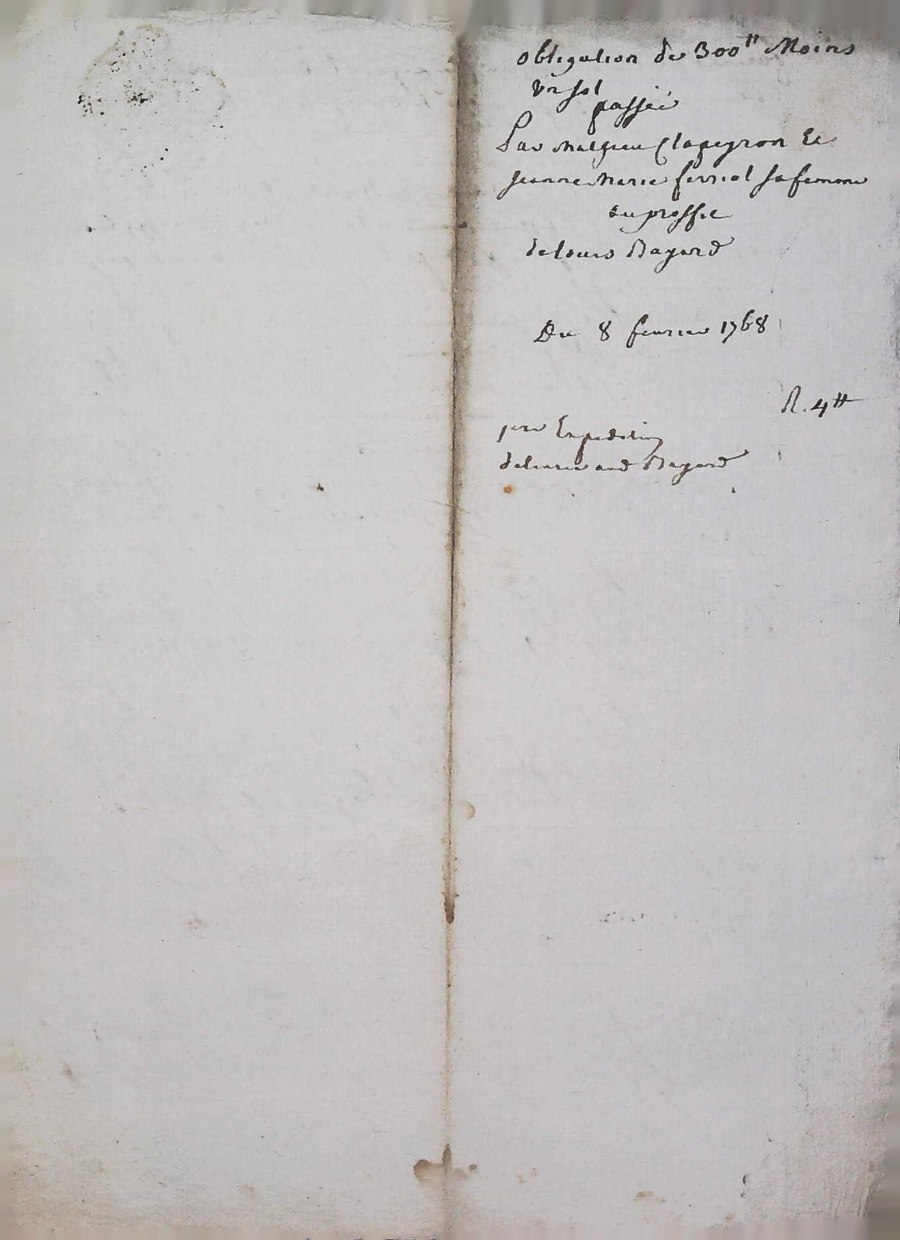 obligation de 300# Moins
vn sol
passée
Par Mathieu Clapeyron et
Jeanne Marie ferriol sa femme
au proffit
de Louis Bayard
Du 8 feurier 1768
R. 4#
pere Expedition
Bayard